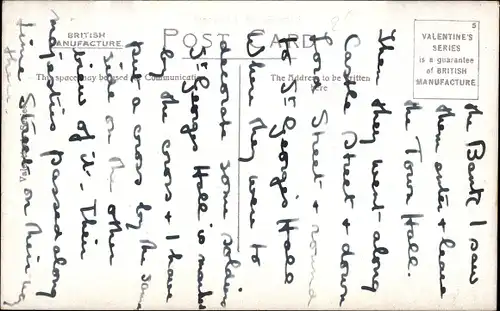 BRITISH
MANUFACTURE.
POST CARD
This space may be used for Communication.
The Address to be written
here
5
VALENTINE'S
SERIES
is a guarantee
of BRITISH
MANUFACTURE.
the Bank I saw
them enter & leave
the Town Hall.
Then they went along
Castle Street & down
Lord Street & round
to St George's Hall
where they were to
decorate some soldiers
St Georges Hall is marked
by the cross & I have
put a cross by the same
side on the other
view of it. Their
majesties passed along
Lime Street on their way
there.